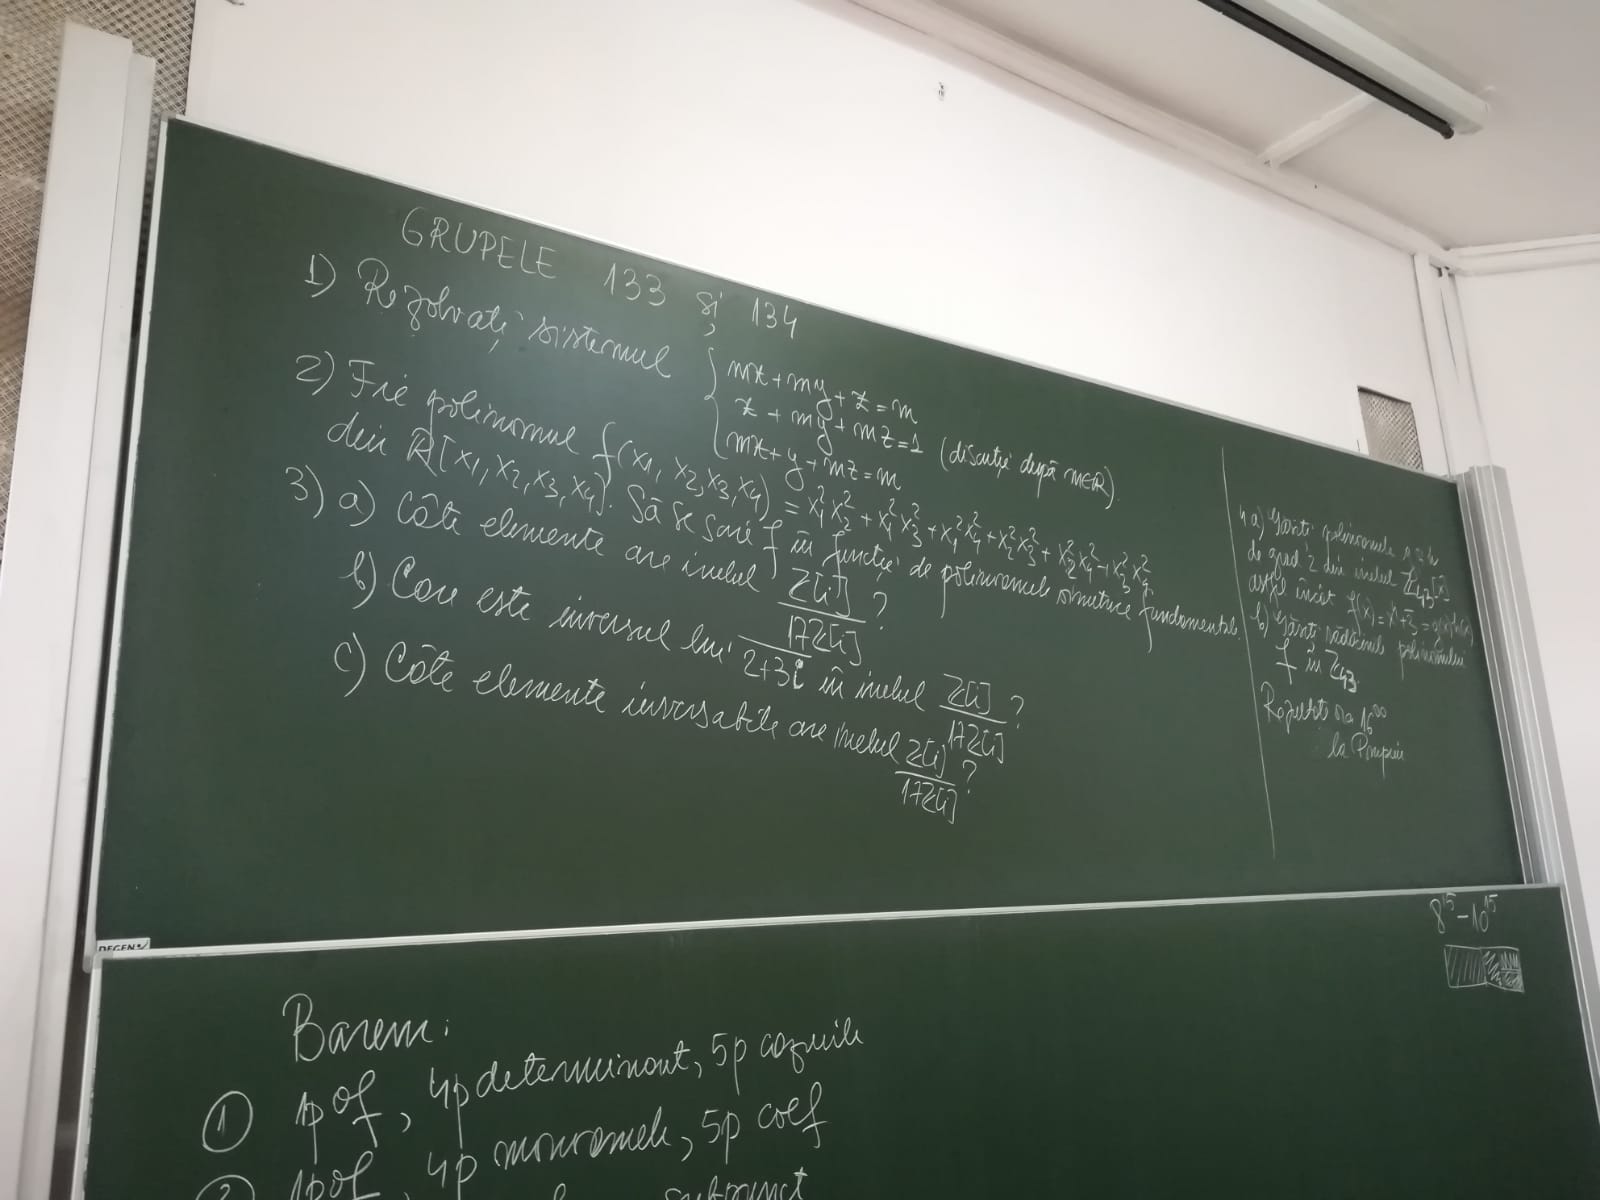 GRUPELE 133 și 134
1) Rezolvați sistemul { mx + my + z = m
x + my + mz = 1 (discuție după m∈R).
mx + y + mz = m
2) Fie polinomul f(x1, x2, x3, x4) = x1²x2² + x1²x3² + x1²x4² + x2²x3² + x2²x4² + x3²x4²
din R[x1, x2, x3, x4]. Să se scrie f în funcție de polinoamele simetrice fundamentale.
3) a) Câte elemente are inelul Z[i]/17Z[i] ?
b) Care este inversul lui 2+3i în inelul Z[i]/17Z[i] ?
c) Câte elemente inversabile are inelul Z[i]/17Z[i] ?
4 a) Găsiți polinoamele g, h
de grad 2 din inelul Z43[x]
astfel încât f(x) = = g(x)h(x)
b) Găsiți rădăcinile polinomului
f în Z43.
Rezultate ora 16⁰⁰
la Pompeiu
DEGEN
8¹⁵ - 10¹⁵
Barem:
① 1p of, 4p determinant, 5p cazurile
② 1p of, 4p monoamele, 5p coef
subpunct